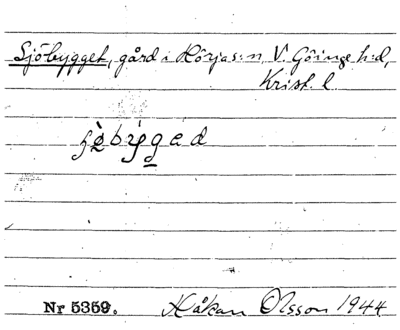 Sjöbygget, gård i Hörjas:n, V. Göinge h:d,
Krist. l.
Nr 5359. Håkan Olsson 1944